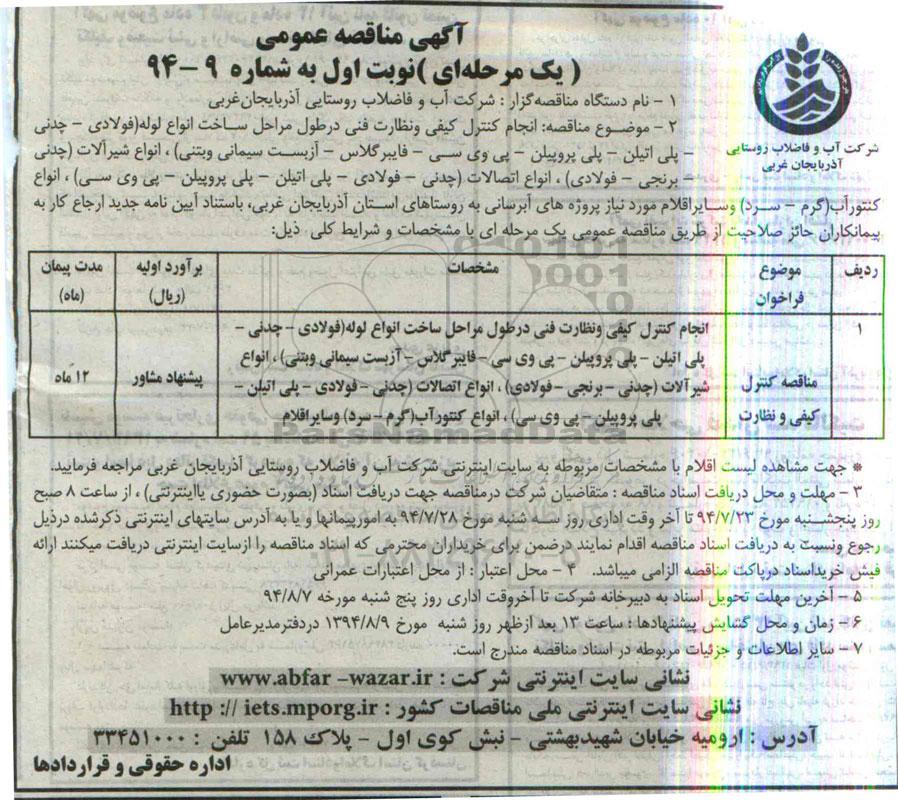 آگهی مناقصه عمومی
( یک مرحله‌ای ) نوبت اول به شماره ۹ – ۹۴
شرکت آب و فاضلاب روستایی
آذربایجان غربی
۱ – نام دستگاه مناقصه‌گزار : شرکت آب و فاضلاب روستایی آذربایجان‌غربی
۲ – موضـوع مناقصه: انجام کنترل کیفی ونظارت فنی درطول مراحل ساخت انواع لوله(فولادی – چدنی
– پلی اتیلن – پلی پروپیلن – پی وی سـی – فایبرگلاس – آزبسـت سیمانی وبتنی) ، انواع شیرآلات (چدنی
– برنجی – فولادی) ، انواع اتصالات (چدنی – فولادی – پلی اتیلن – پلی پروپیلن – پی وی سـی) ، انواع
کنتورآب(گرم – سـرد) وسایراقلام مورد نیاز پروژه های آبرسانی به روستاهای استان آذربایجان غربی، باستناد آیین نامه جدید ارجاع کار به
پیمانکاران حائز صلاحیت از طریق مناقصه عمومی یک مرحله ای با مشخصات و شرایط کلی ذیل:
ردیف | موضوع فراخوان | مشخصات | برآورد اولیه (ریال) | مدت پیمان (ماه)
۱ | مناقصه کنترل کیفی و نظارت | انجام کنترل کیفی ونظارت فنی درطول مراحل ساخت انواع لوله(فولادی – چدنی –
پلی اتیلن – پلی پروپیلن – پی وی سی – فایبرگلاس – آزبست سیمانی وبتنی) ، انواع
شیرآلات (چدنی – برنجی – فولادی) ، انواع اتصالات (چدنی – فولادی – پلی اتیلن –
پلی پروپیلن – پی وی سی) ، انواع کنتورآب(گرم – سرد) وسایراقلام | پیشنهاد مشاور | ۱۲ ماه
ParsNamadData
* جهت مشاهده لیست اقلام با مشخصات مربوطه به سایت اینترنتی شرکت آب و فاضلاب روستایی آذربایجان غربی مراجعه فرمایید.
۳ – مهلت و محل دریافت اسناد مناقصه : متقاضیان شرکت درمناقصه جهت دریافت اسناد (بصورت حضوری یااینترنتی) ، از ساعت ۸ صبح
روز پنجشـنبه مورخ ۹۴/۷/۲۳ تا آخر وقت اداری روز سـه شنبه مورخ ۹۴/۷/۲۸ به امورپیمانها و یا به آدرس سایتهای اینترنتی ذکرشده درذیل
رجوع ونسبت به دریافت اسناد مناقصه اقدام نمایند درضمن برای خریداران محترمی که اسناد مناقصه را ازسایت اینترنتی دریافت میکنند ارائه
فیش خریداسناد درپاکت مناقصه الزامی میباشد. ۴ – محل اعتبار : از محل اعتبارات عمرانی
۵ – آخرین مهلت تحویل اسناد به دبیرخانه شرکت تا آخروقت اداری روز پنج شنبه مورخه ۹۴/۸/۷
۶ – زمان و محل گشایش پیشنهادها : ساعت ۱۳ بعد ازظهر روز شنبه مورخ ۱۳۹۴/۸/۹ دردفترمدیرعامل
۷ – سایر اطلاعات و جزئیات مربوطه در اسناد مناقصه مندرج است.
نشانی سایت اینترنتی شرکت : www.abfar -wazar.ir
نشانی سایت اینترنتی ملی مناقصات کشور : http :// iets.mporg.ir
آدرس : ارومیه خیابان شهیدبهشتی – نبش کوی اول – پلاک ۱۵۸ تلفن : ۳۳۴۵۱۰۰۰
اداره حقوقی و قراردادها